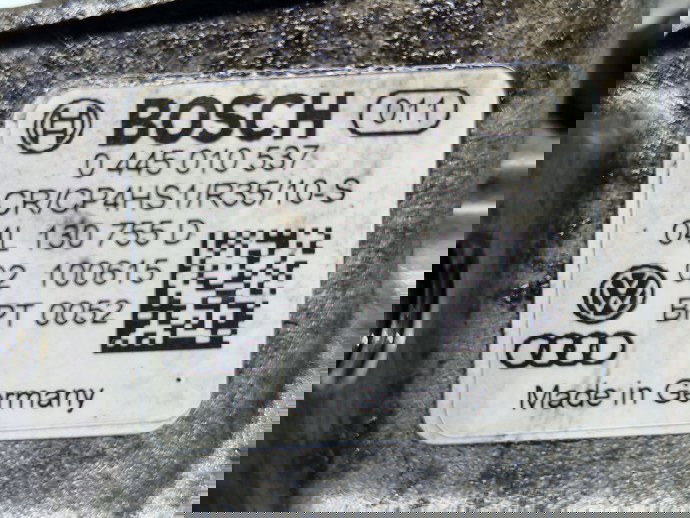 BOSCH 011
0 445 010 537
CR/CP4HS1/R35/10-S
04L 130 755 D
02 100615
BPT 0052
Made in Germany